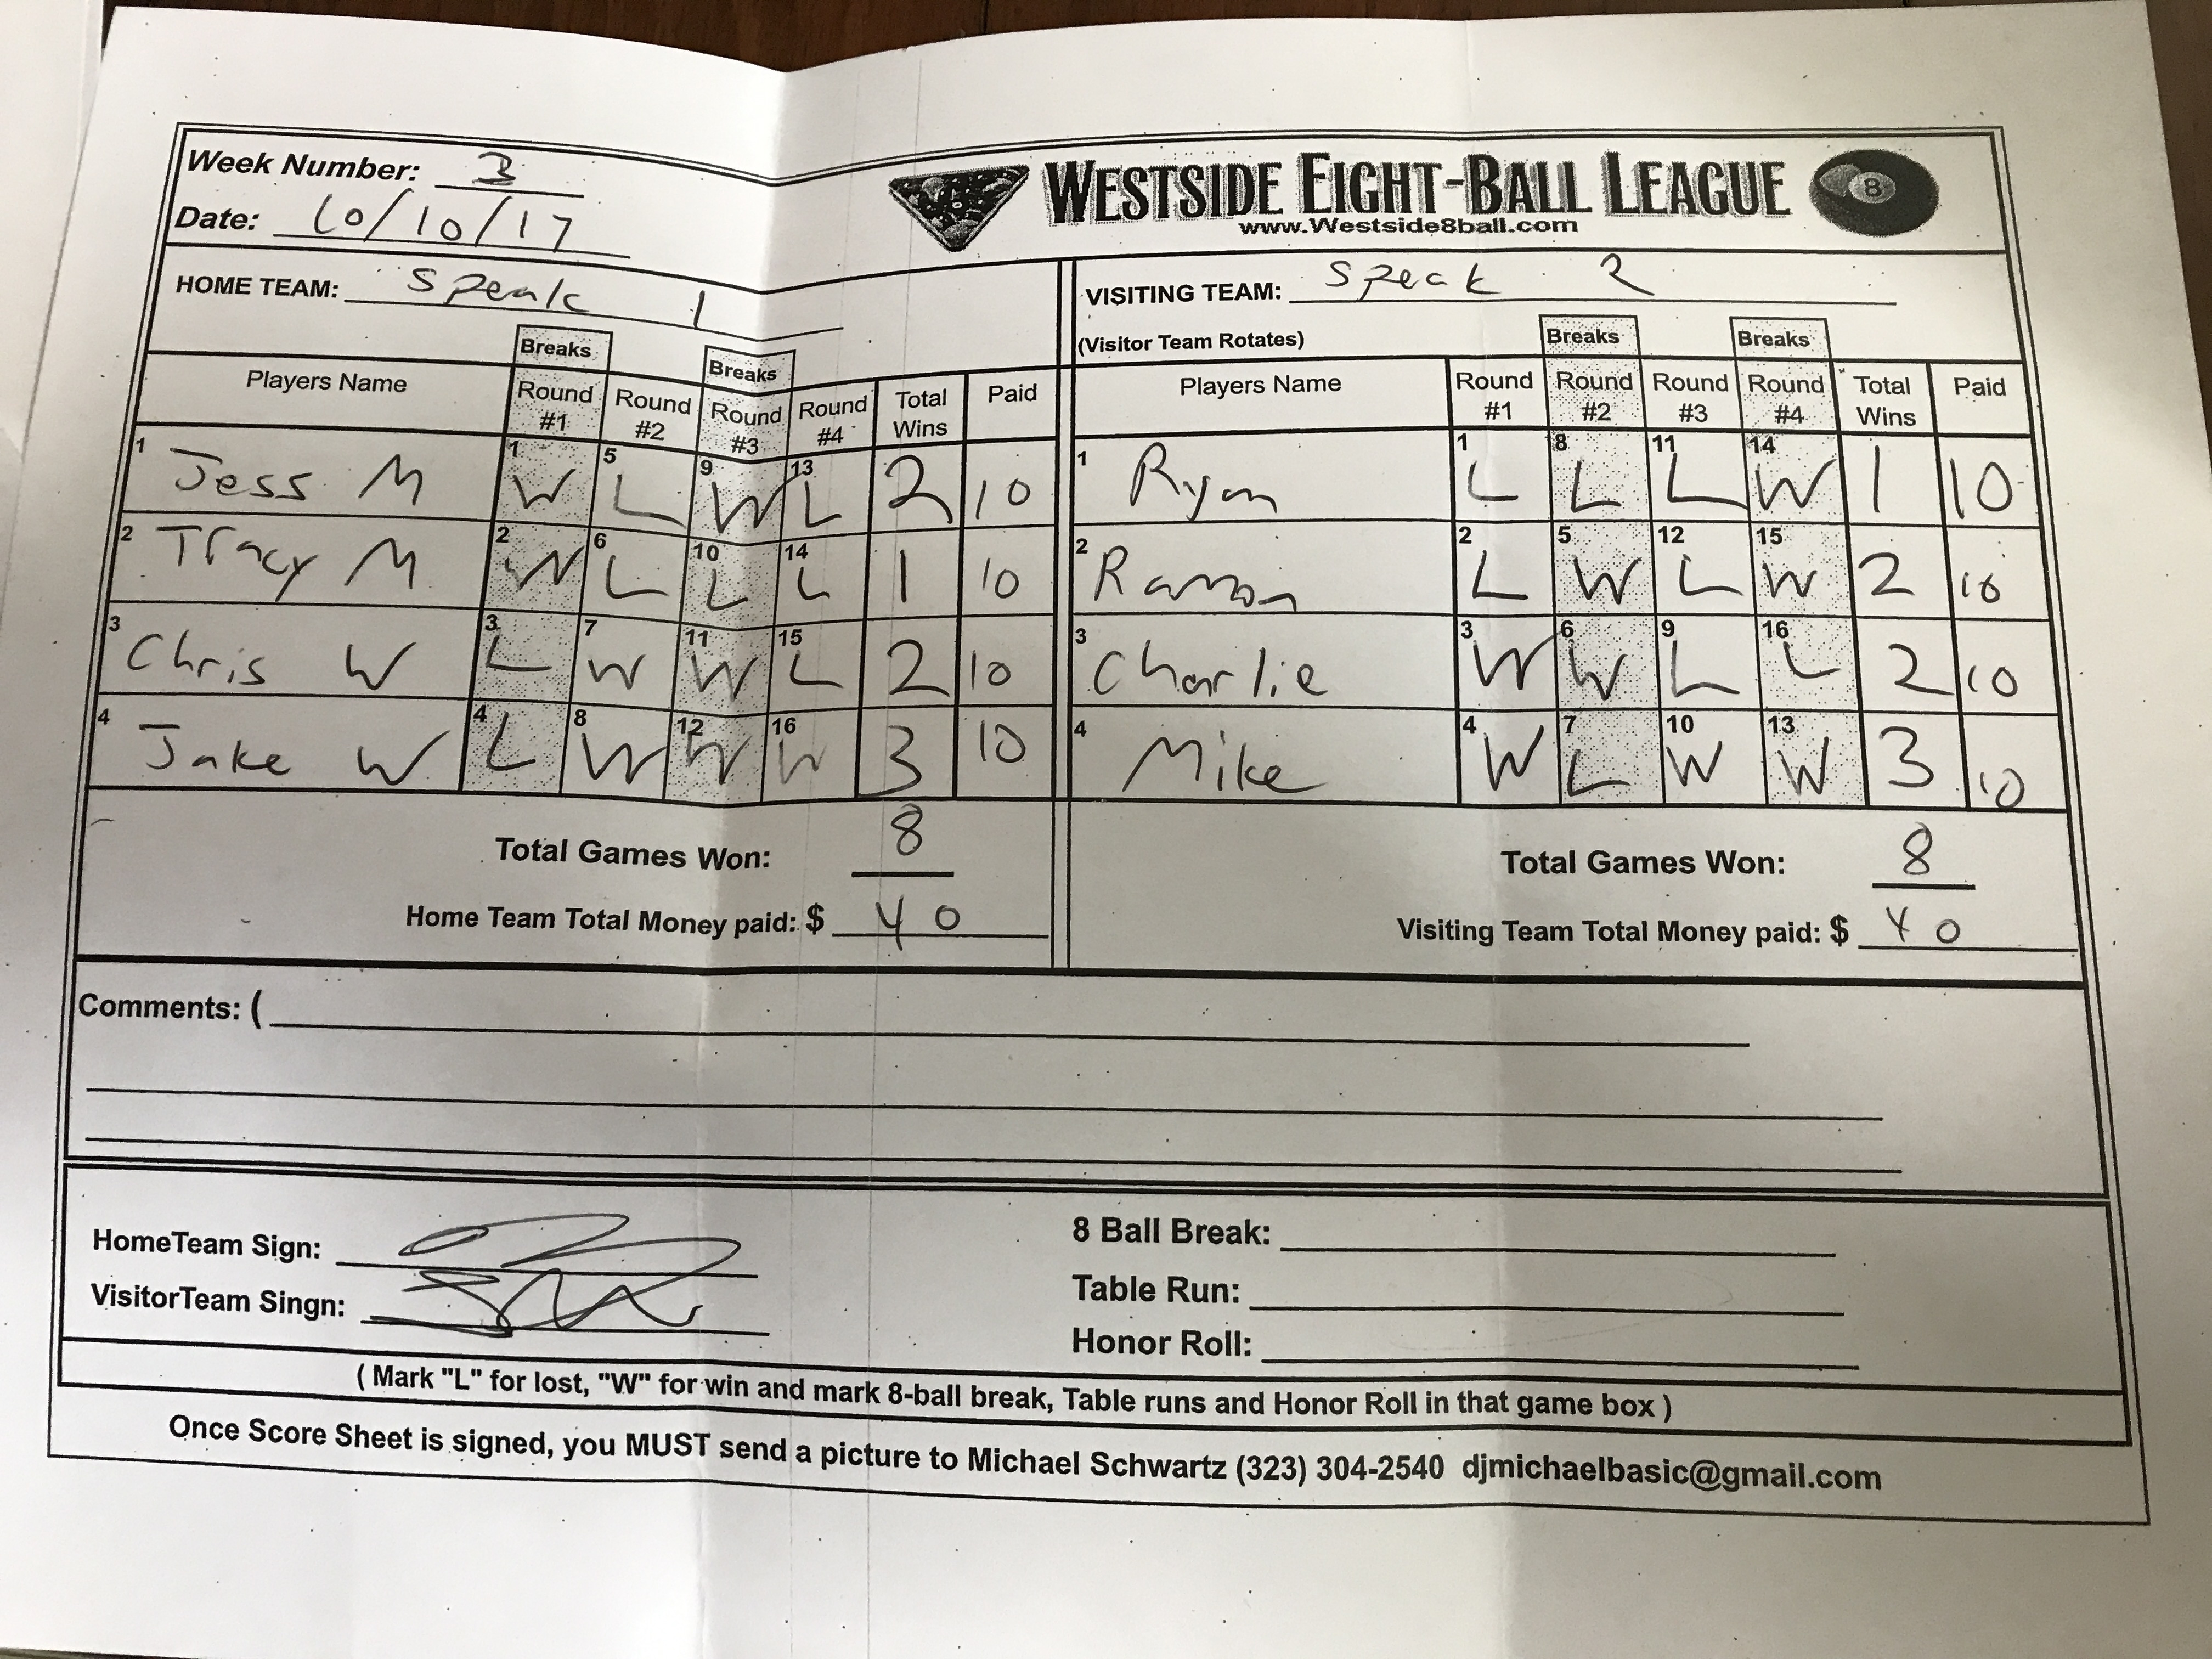 Week Number: 3
Date: 10/10/17
WESTSIDE EIGHT-BALL LEAGUE 8
www.Westside8ball.com
HOME TEAM: Speak 1
VISITING TEAM: Speak 2
(Visitor Team Rotates)
Breaks Breaks Breaks Breaks
Players Name Round #1 Round #2 Round #3 Round #4 Total Wins Paid Players Name Round #1 Round #2 Round #3 Round #4 Total Wins Paid
1 Jess M 1 W 5 L 9 W 13 L 2 10 1 Ryan 1 L 8 L 11 L 14 W 1 10
2 Tracy M 2 W 6 L 10 L 14 L 1 10 2 Ramon 2 L 5 W 12 L 15 W 2 10
3 Chris W 3 L 7 W 11 W 15 L 2 10 3 Charlie 3 W 6 W 9 L 16 L 2 10
4 Jake W 4 L 8 W 12 W 16 W 3 10 4 Mike 4 W 7 L 10 W 13 W 3 10
Total Games Won: 8 Total Games Won: 8
Home Team Total Money paid: $ 40 Visiting Team Total Money paid: $ 40
Comments: (
HomeTeam Sign:
VisitorTeam Singn:
8 Ball Break:
Table Run:
Honor Roll:
( Mark "L" for lost, "W" for win and mark 8-ball break, Table runs and Honor Roll in that game box )
Once Score Sheet is signed, you MUST send a picture to Michael Schwartz (323) 304-2540 djmichaelbasic@gmail.com